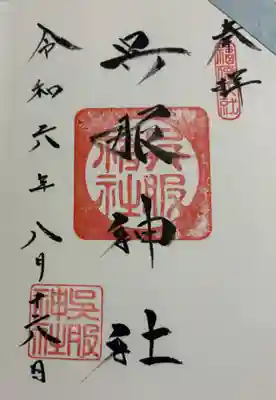 奉拝
呉服神社
呉服神社
令和六年八月十八日
呉服神社